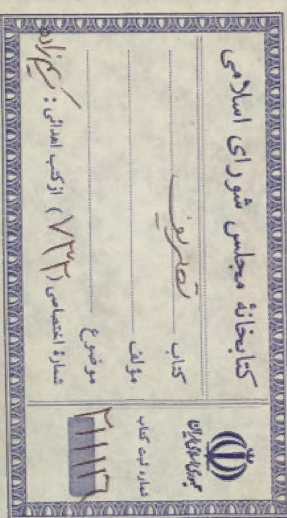 کتابخانهٔ مجلس شورای اسلامی
کتاب تصریف
مؤلف
موضوع
شمارهٔ اختصاصی (۷۳۲) از کتب اهدائی :
جمهوری اسلامی ایران
شماره ثبت کتاب